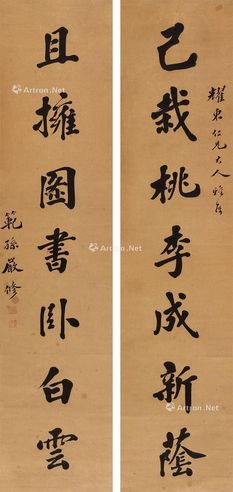 耀東仁兄大人雅屬
已栽桃李成新蔭
且擁圖書卧白雲
範孫嚴修
Artron.Net
Artron.Net
Artron.Net
Artron.Net
Artron.Net
Artron.Net